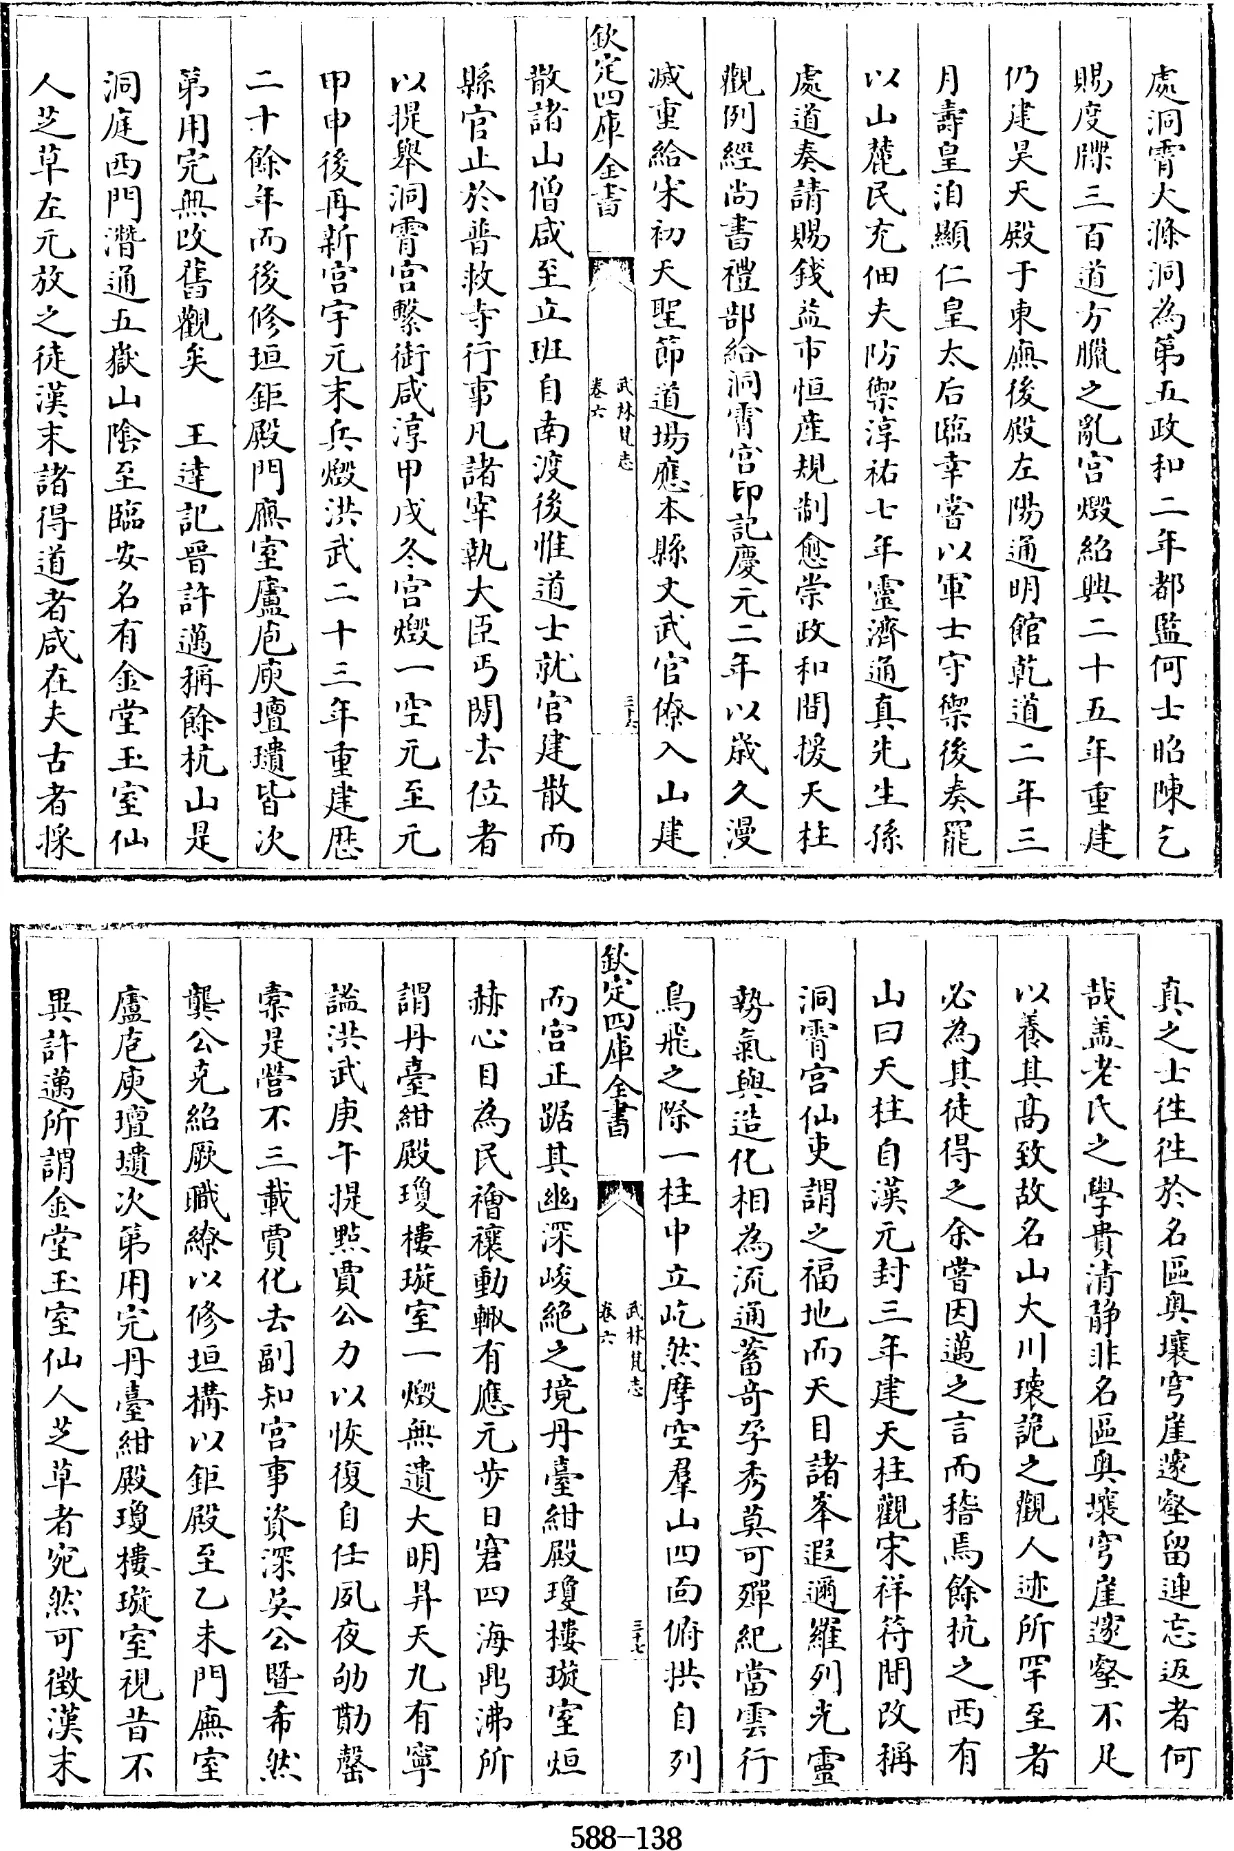 處洞霄大滌洞為第五政和二年都監何士昭陳乞
賜度牒三百道方臘之亂宮燬紹興二十五年重建
仍建昊天殿于東廡後殿左陽通明館乾道二年三
月壽皇洎顯仁皇太后臨幸嘗以軍士守禦後奏罷
以山麓民充佃夫防禦淳祐七年靈濟通真先生孫
處道奏請賜錢益市恒產規制愈崇政和間援天柱
觀例經尚書禮部給洞霄宮印記慶元二年以歲久漫
滅重給宋初天聖節道場應本縣文武官僚入山建
欽定四庫全書
武林梵志
卷六
三十六
散諸山僧咸至立班自南渡後惟道士就官建散而
縣官止於普救寺行事凡諸宰執大臣丐閒去位者
以提舉洞霄宮繫銜咸淳甲戌冬宮燬一空元至元
甲申後再新宮宇元末兵燬洪武二十三年重建歷
二十餘年而後修垣鉅殿門廡室廬庖庾壇壝皆次
第用完無改舊觀矣 王達記晉許邁稱餘杭山是
洞庭西門潛通五嶽山陰至臨安名有金堂玉室仙
人芝草左元放之徒漢末諸得道者咸在夫古者採
真之士往往於名區奧壤穹崖邃壑留連忘返者何
哉蓋老氏之學貴清静非名區奧壤穹崖邃壑不足
以養其高致故名山大川瓌詭之觀人迹所罕至者
必為其徒得之余嘗因邁之言而稽焉餘杭之西有
山曰天柱自漢元封三年建天柱觀宋祥符間改稱
洞霄宮仙吏謂之福地而天目諸峯遐邇羅列光靈
勢氣與造化相為流通蓄奇孕秀莫可殫紀當雲行
鳥飛之際一柱中立屹然摩空羣山四面俯拱自列
欽定四庫全書
武林梵志
卷六
三十七
而宮正踞其幽深峻絶之境丹臺紺殿瓊樓璇室烜
赫心目為民禬禳動輙有應元步日窘四海鼎沸所
謂丹臺紺殿瓊樓璇室一燬無遺大明昇天九有寧
謐洪武庚午提點賈公力以恢復自任夙夜劬勩罄
橐是營不三載賈化去副知宮事資深吳公暨希然
龔公克紹厥職繚以修垣搆以鉅殿至乙未門廡室
廬庖庾壇壝次第用完丹臺紺殿瓊樓璇室視昔不
異許邁所謂金堂玉室仙人芝草者宛然可徵漢末
588-138